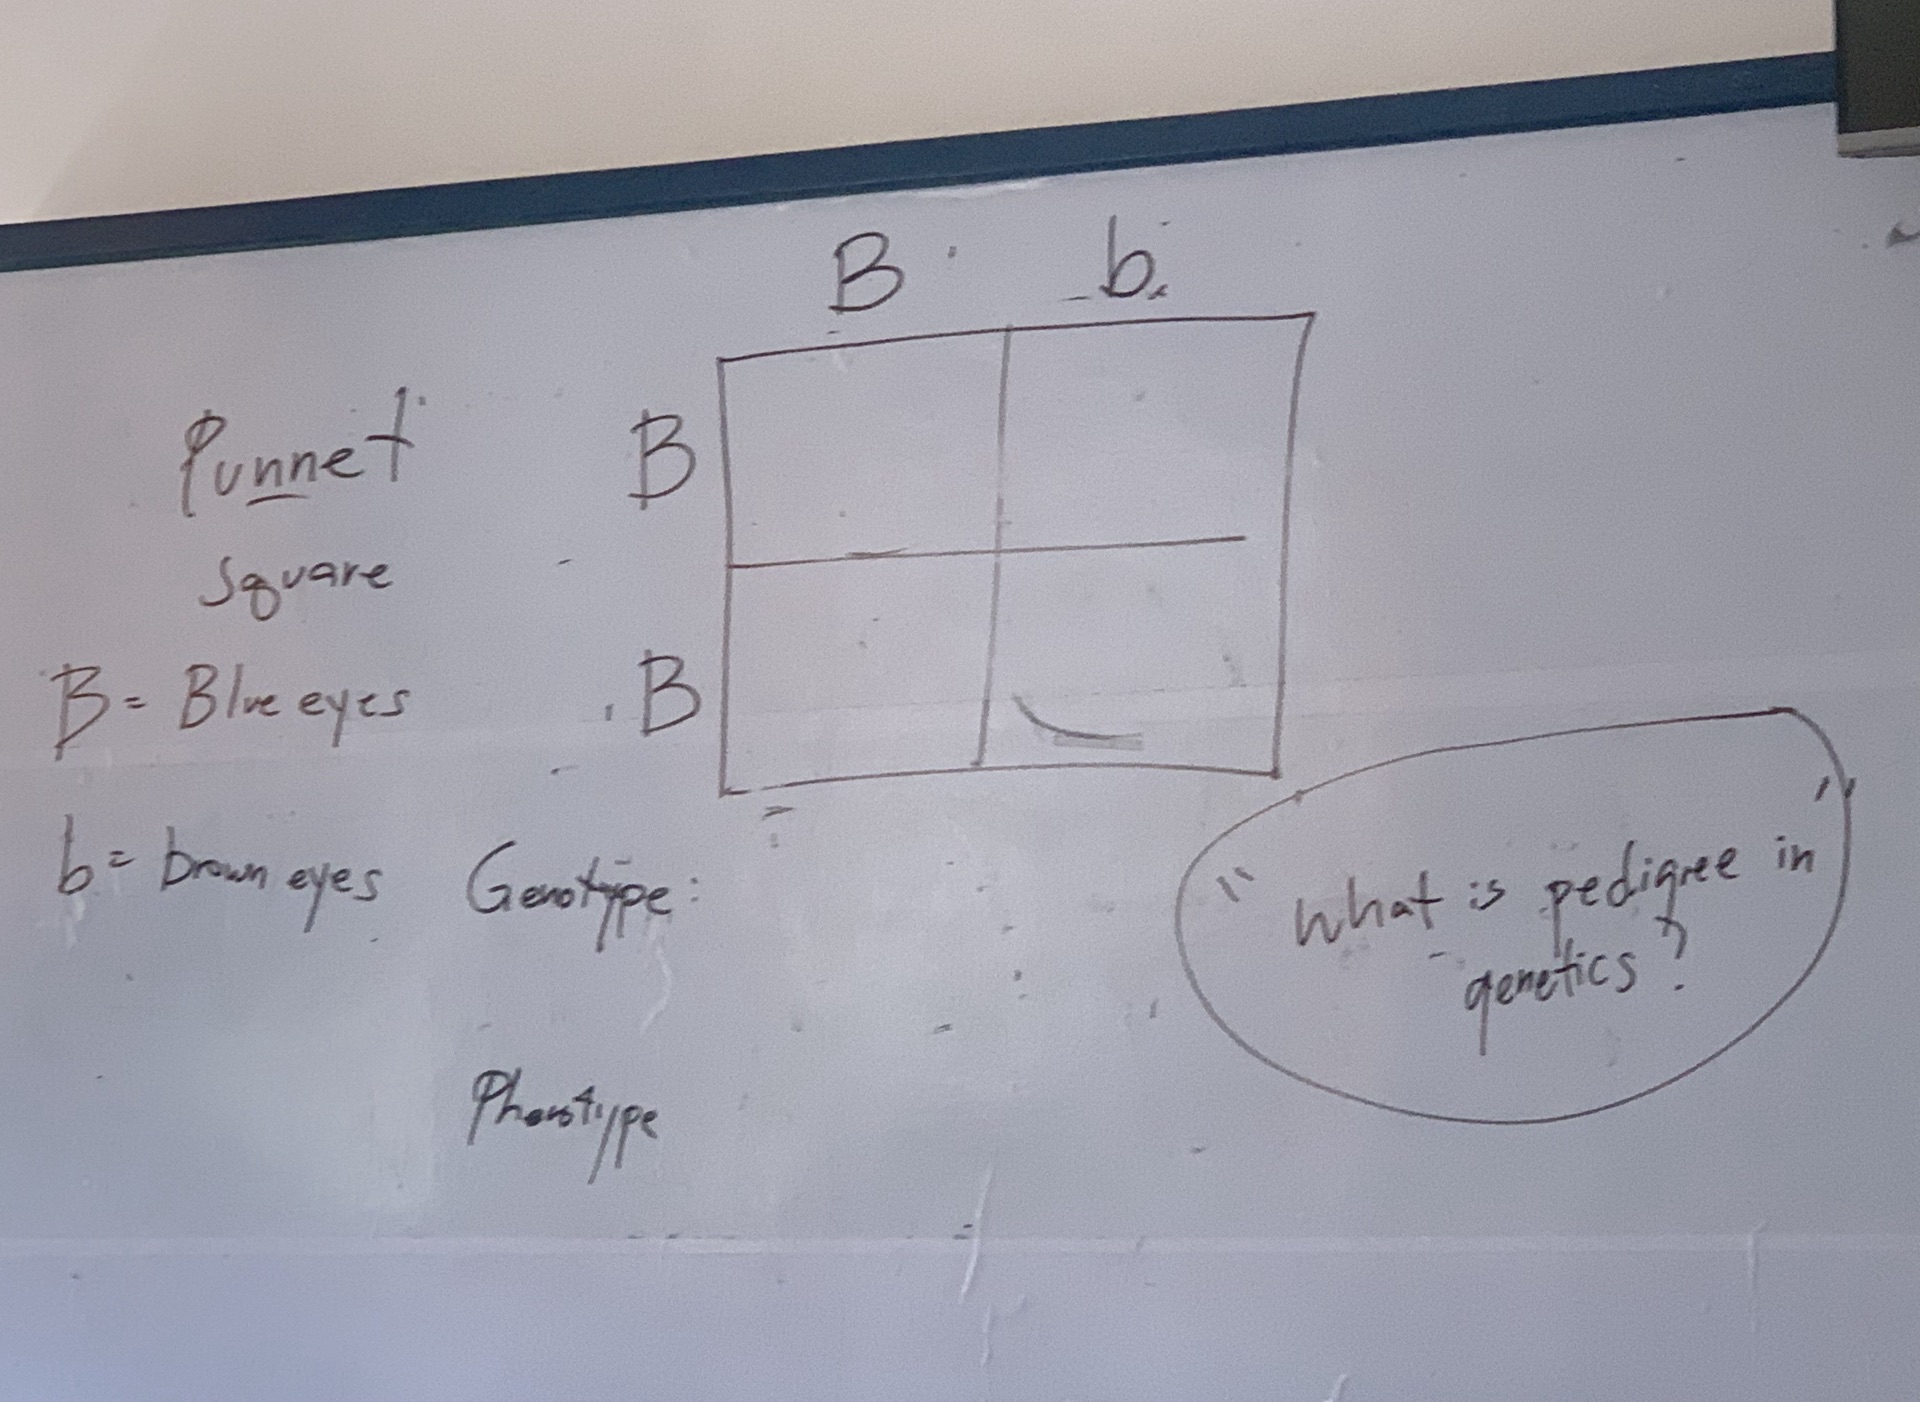 B b
Punnet
square
B
B
B = Blue eyes
b = brown eyes
Genotype:
Phenotype
"What is pedigree in
genetics?"